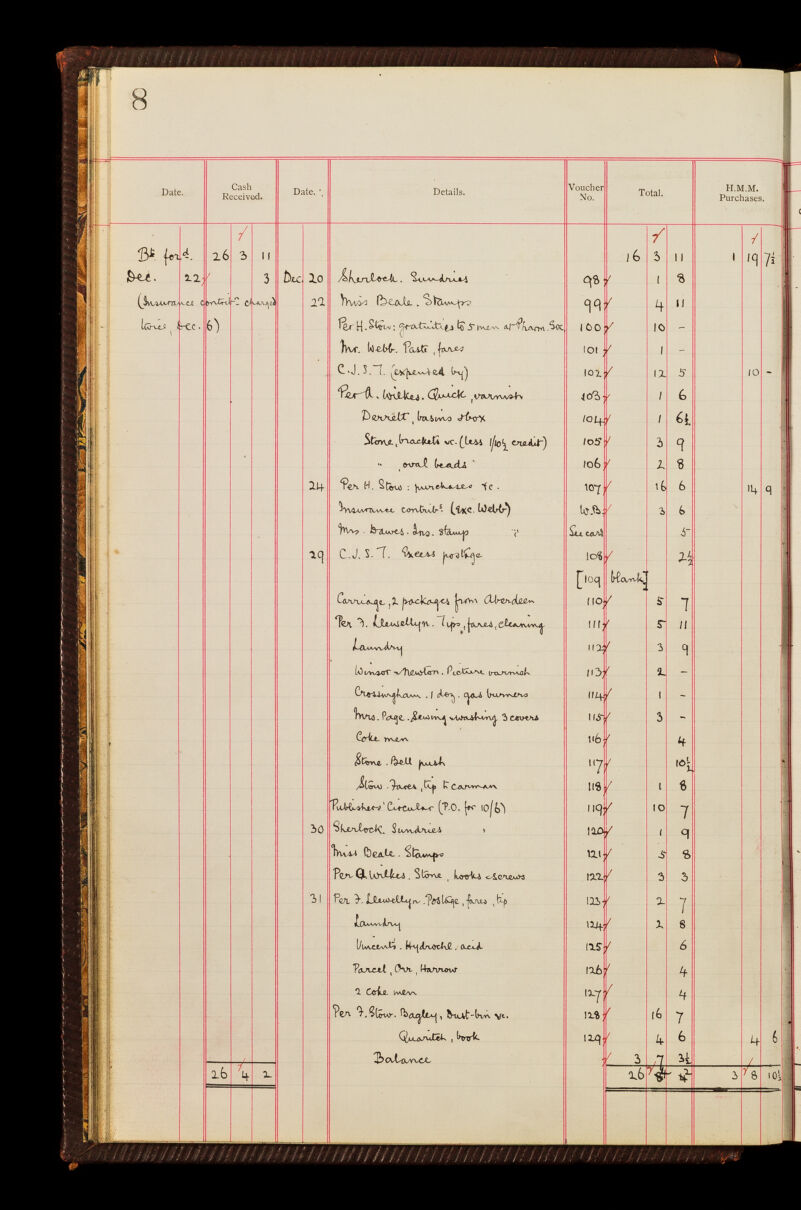 8
Date. Cash Received. Date. Details. Voucher No. Total. H.M.M. Purchases.
Bt. ford. 26 3 11 16 3 11 1 19 7½
Dec. 22 3 Dec. 20 Sherlock. Sundries 98 1 8
(Insurance contribns charged 22 Miss Beale. Stamps 99 4 11
Ones, Dec. 6) Per H. Stow: gratuities to 5 men at Pharm. Soc. 100 10 -
Mr. Webb. Paste, fares 101 1 -
C.J.S.T. (expended by) 102 12 5 10 -
Per A. Wilkes. Quick, varnish 103 1 6
Derrett, basins &box 104 1 6½
Stone, brackets &c. (less 1/10½ credit) 105 3 9
" oval beads 106 2 8
24 Per H. Stow: purchases &c. 107 16 6 14 9
Insurance contribns (exc. Webb) 3 6
Mrs. Brawes. Ins. stamp ? See card 5
29 C.J.S.T. Excess postage 108 2½
[109 blank]
Carriage, 2 packages from Aberdeen 110 5 7
Per F. Llewellyn. Tips, fares, cleaning 111 5 11
Laundry 112 3 9
Winsor & Newton. Picture varnish 113 2 -
Crossingham. 1 doz. gas burners 114 1 -
Mrs. Page. Sewing & washing 3 covers 115 3 -
Coke men 116 4
Stone. Bell push 117 10½
Stow. Fares, tip to carman 118 1 8
Publishers' Circular (P.O. for 10/6) 119 10 7
30 Sherlock. Sundries 120 1 9
Miss Beale. Stamps 121 5 8
Per A. Wilkes. Stone, hooks & screws 122 3 3
31 Per F. Llewellyn. Postage, fares, tip 123 2 7
Laundry 124 2 8
Vincents. Hydrochl. acid 125 6
Parcel, Orr, Harrow 126 4
2 Coke men 127 4
Per F. Stow. Bagley, dust-bin &c. 128 16 7
Quaritch, book 129 4 6 4 6
Balance 3 7 3½
26 4 2 26 4 2 3 8 10½